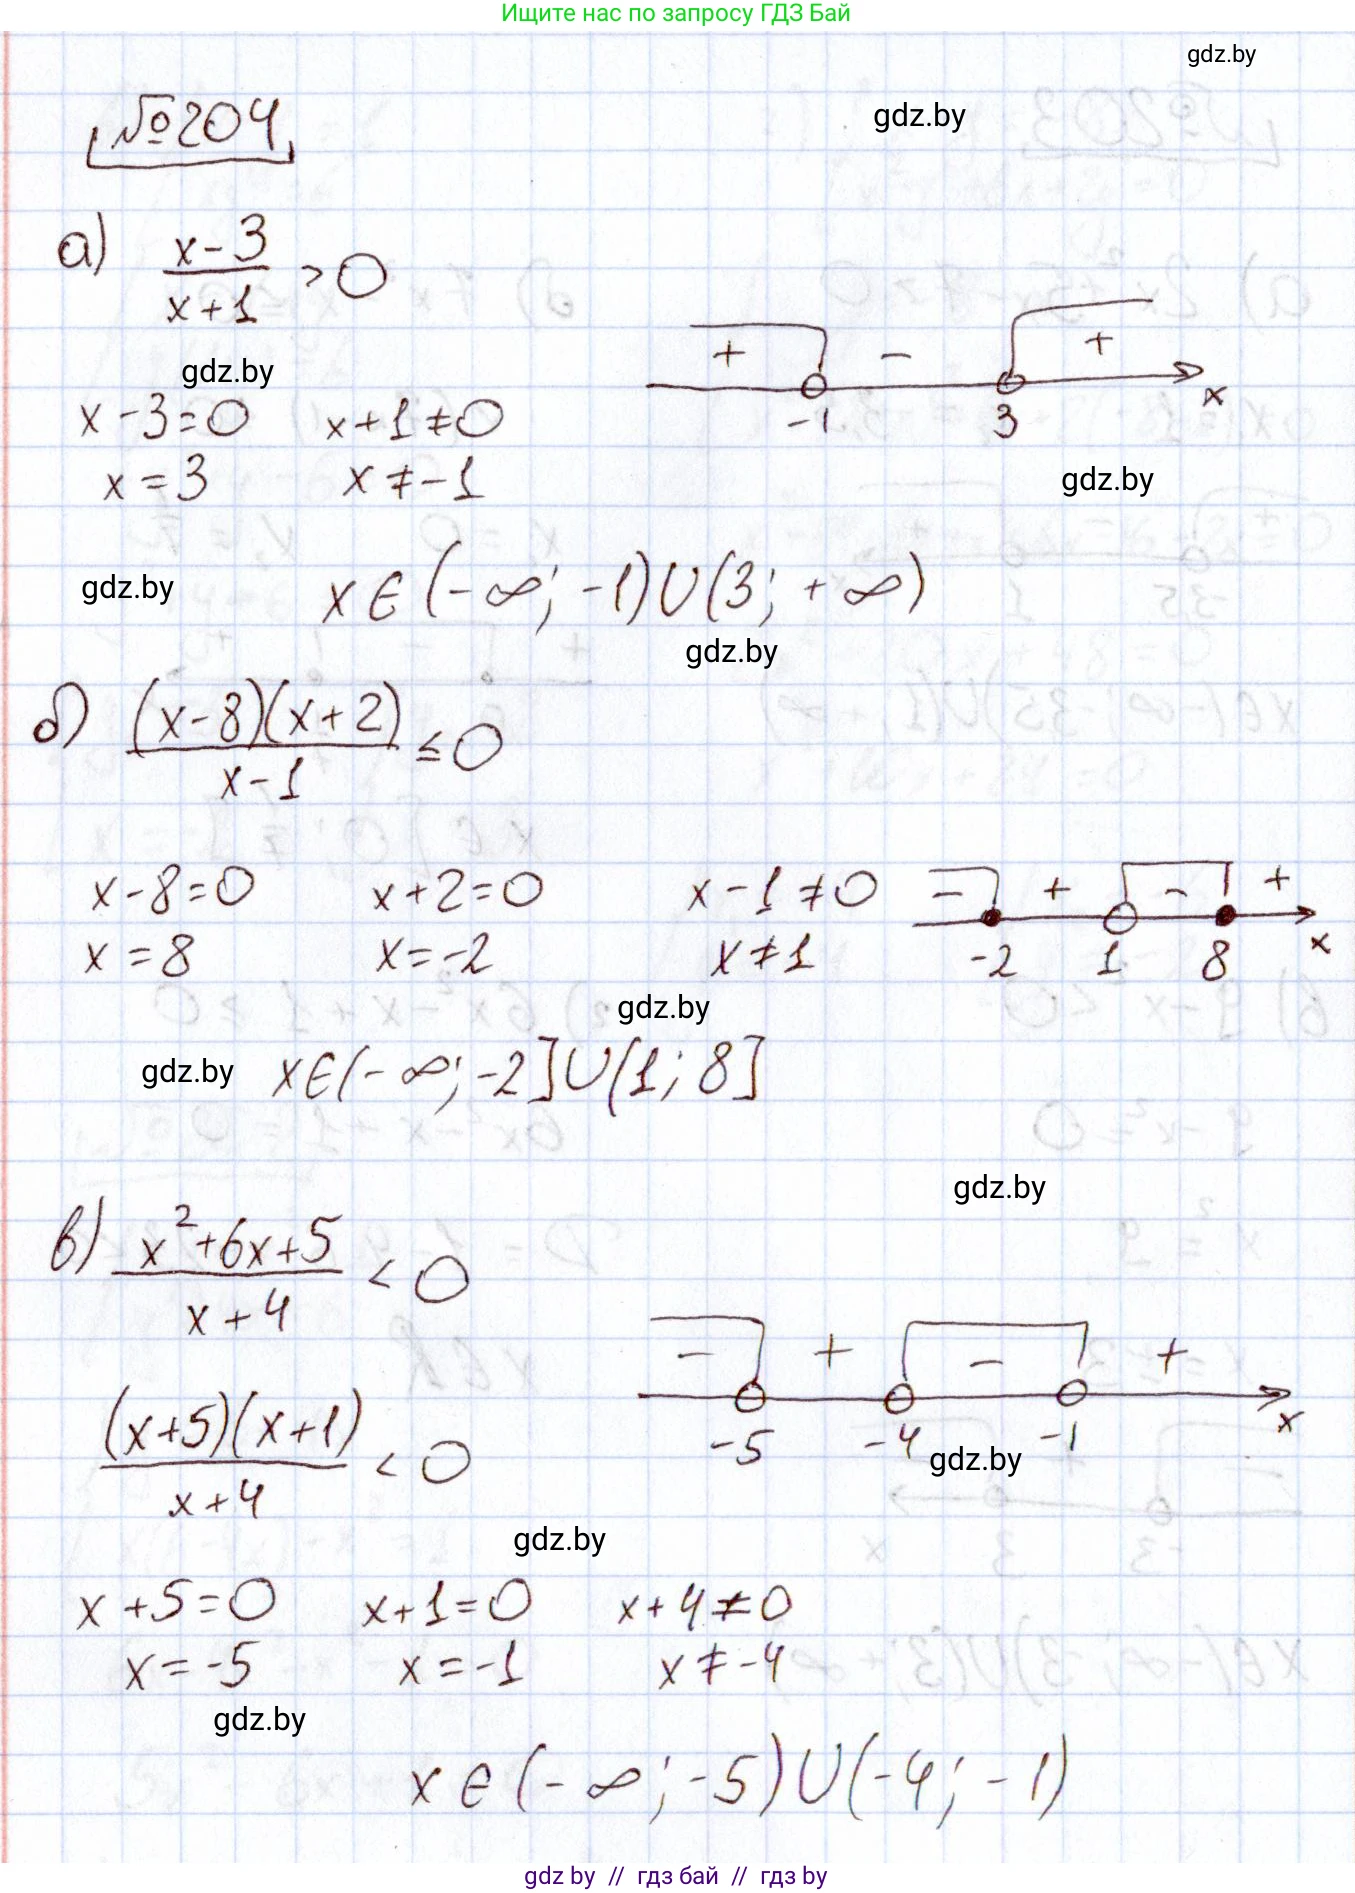 Ищите нас по запросу ГДЗ Бай
gdz.by
№204
gdz.by
а) (x-3)/(x+1) > 0
+ - +
gdz.by
-1 3 x
x-3=0 x+1≠0
x=3 x≠-1
gdz.by
gdz.by
x∈(-∞; -1)∪(3; +∞)
gdz.by
б) ((x-8)(x+2))/(x-1) ≤ 0
x-8=0 x+2=0 x-1≠0
x=8 x=-2 x≠1
- + - +
-2 1 8 x
gdz.by
gdz.by
x∈(-∞; -2]∪(1; 8]
gdz.by
в) (x²+6x+5)/(x+4) < 0
- + - +
-5 -4 -1 x
((x+5)(x+1))/(x+4) < 0
gdz.by
gdz.by
x+5=0 x+1=0 x+4≠0
x=-5 x=-1 x≠-4
gdz.by
x∈(-∞; -5)∪(-4; -1)
gdz by // гдз бай // гдз by